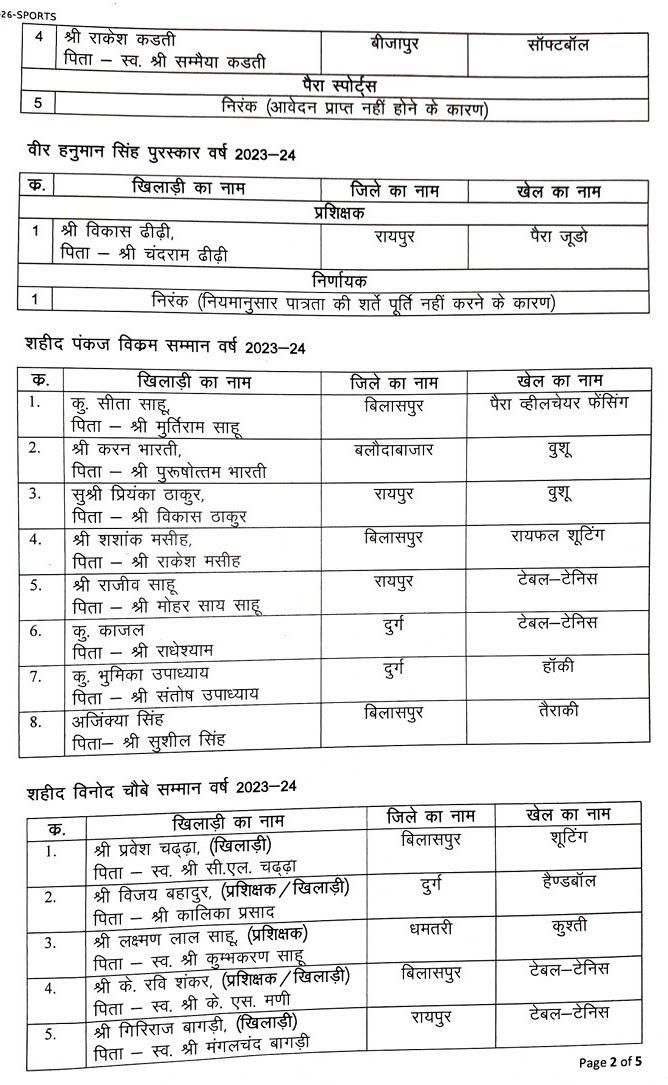 26-SPORTS
4 श्री राकेश कडती बीजापुर सॉफ्टबॉल
पिता – स्व. श्री सम्मैया कडती
पैरा स्पोर्ट्स
5 निरंक (आवेदन प्राप्त नहीं होने के कारण)
वीर हनुमान सिंह पुरस्कार वर्ष 2023–24
क. खिलाड़ी का नाम जिले का नाम खेल का नाम
प्रशिक्षक
1 श्री विकास ढीढ़ी, रायपुर पैरा जूडो
पिता – श्री चंदराम ढीढ़ी
निर्णायक
1 निरंक (नियमानुसार पात्रता की शर्ते पूर्ति नहीं करने के कारण)
शहीद पंकज विक्रम सम्मान वर्ष 2023–24
क. खिलाड़ी का नाम जिले का नाम खेल का नाम
1. कु. सीता साहू, बिलासपुर पैरा व्हीलचेयर फेंसिंग
पिता – श्री मुर्तिराम साहू
2. श्री करन भारती, बलौदाबाजार वुशू
पिता – श्री पुरूषोत्तम भारती
3. सुश्री प्रियंका ठाकुर, रायपुर वुशू
पिता – श्री विकास ठाकुर
4. श्री शशांक मसीह, बिलासपुर रायफल शूटिंग
पिता – श्री राकेश मसीह
5. श्री राजीव साहू रायपुर टेबल–टेनिस
पिता – श्री मोहर साय साहू
6. कु. काजल दुर्ग टेबल–टेनिस
पिता – श्री राधेश्याम
7. कु. भुमिका उपाध्याय दुर्ग हॉकी
पिता – श्री संतोष उपाध्याय
8. अजिंक्या सिंह बिलासपुर तैराकी
पिता– श्री सुशील सिंह
शहीद विनोद चौबे सम्मान वर्ष 2023–24
क. खिलाड़ी का नाम जिले का नाम खेल का नाम
1. श्री प्रवेश चढ्ढ़ा, (खिलाड़ी) बिलासपुर शूटिंग
पिता – स्व. श्री सी.एल. चढ्ढ़ा
2. श्री विजय बहादुर, (प्रशिक्षक/खिलाड़ी) दुर्ग हैण्डबॉल
पिता – श्री कालिका प्रसाद
3. श्री लक्ष्मण लाल साहू, (प्रशिक्षक) धमतरी कुश्ती
पिता – स्व. श्री कुम्भकरण साहू
4. श्री के. रवि शंकर, (प्रशिक्षक/खिलाड़ी) बिलासपुर टेबल–टेनिस
पिता – स्व. श्री के. एस. मणी
5. श्री गिरिराज बागड़ी, (खिलाड़ी) रायपुर टेबल–टेनिस
पिता – स्व. श्री मंगलचंद बागड़ी
Page 2 of 5